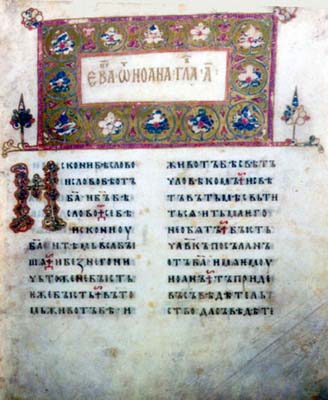 ЕВА ѠТ ІОАНА ГЛА А҃
Искони бѣ слово
и слово бѣ отъ
б҃а и б҃ъ бѣ
слово се бѣ
искони оу
б҃а и тѣмь вьса бы
шѧ и без него ни
чьтоже не бысть
иже бысть въ то
мь животъ бѣ и
животъ бѣ свѣтъ
чловѣкомъ и свѣ
тъ въ тьмѣ свьти
тьсѧ и тьма ѥго
не обѧтъ бысть
чл҃вкъ посъланъ
отъ б҃а имѧ ѥмоу
иоанъ тъ приде
въ съвѣдѣтель
ство да съвѣдѣте